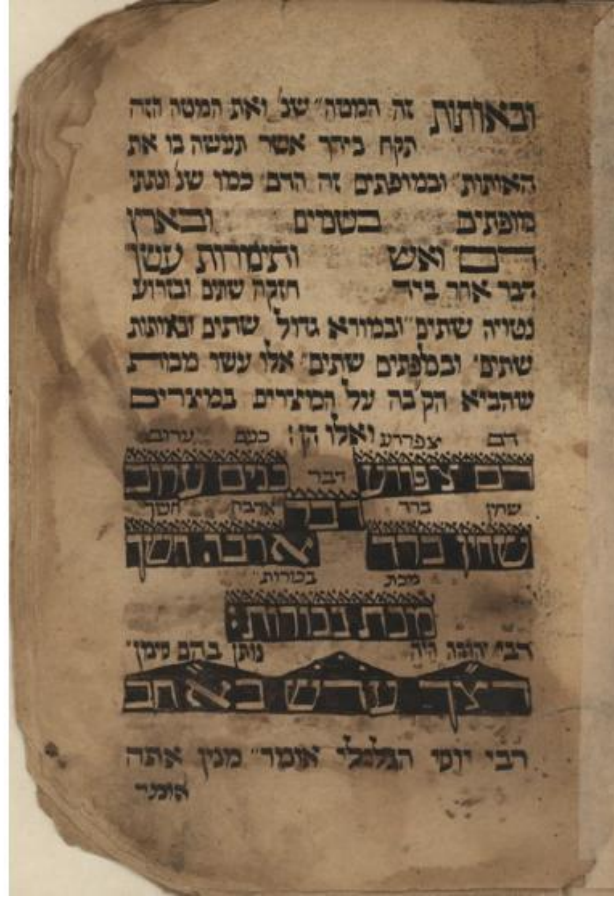 ובאותות זה המטה״ שנ׳ ואת המטה הזה
תקח בידך אשר תעשה בו את
האותות״ ובמופתים זה הדם׳ כמו שנ׳ ונתתי
מופתים בשמים ובארץ
דם ואש ותימרות עשן
דבר אחר ביד חזקה שתים ובזרוע
נטויה שתים״ ובמורא גדול שתים ובאותות
שתים׳ ובמפתים שתים״ אלו עשר מכות
שהביא הק׳בה על המצרים במצרים
ואלו הן:
דם צפרדע כנם ערוב
דם צפרדע דבר כנים ערוב
שחין ברד דבר ארבה חשך
שחין ברד ארבה חשך
מכת בכורות״
מכת בכורות:
רבי יהודה היה נותן בהם סימן״
דצך עדש באחב
רבי יוסי הגלילי אומר״ מנין אתה
אומר